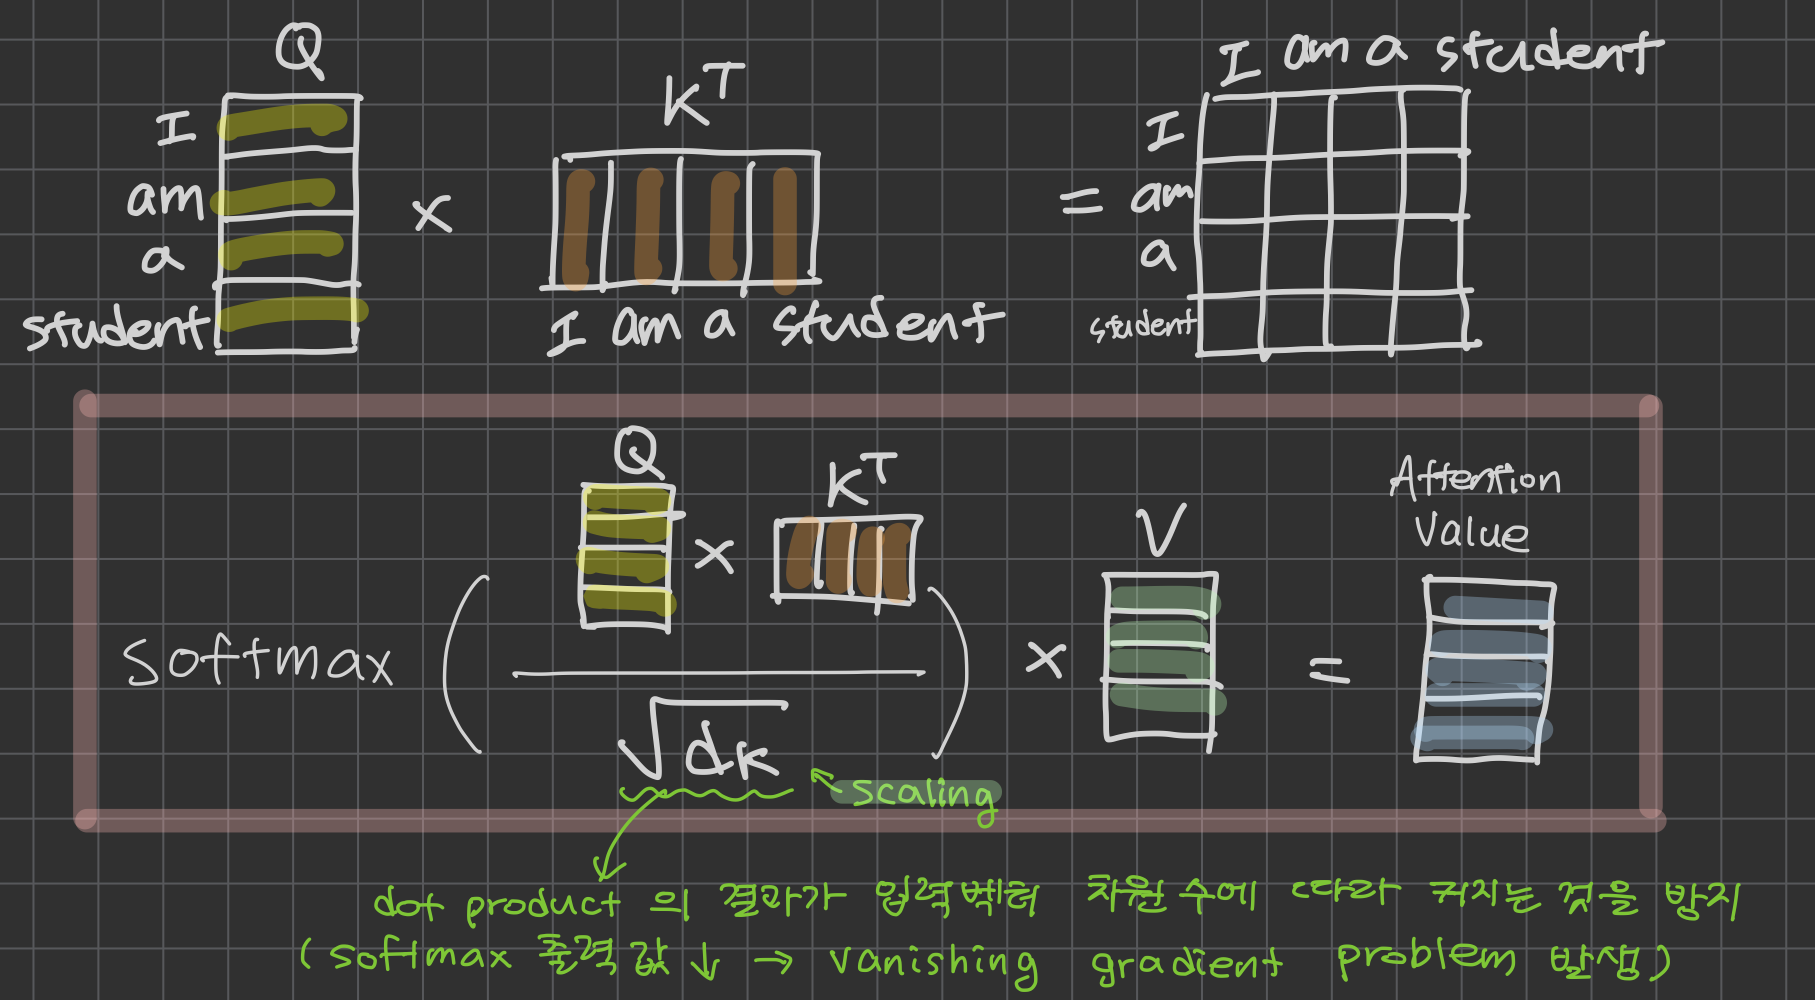 Q
K^T
I am a student
I
am
a
student
×
=
I
am
a
student
I am a student
Q
K^T
V
Attention
Value
×
softmax ( ) × =
√dk
scaling
dot product 의 결과가 입력벡터 차원 수에 따라 커지는 것을 방지
(softmax 출력값 ↓ → vanishing gradient problem 발생)